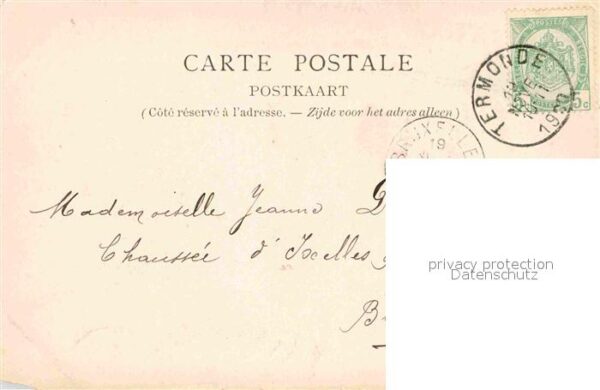 CARTE POSTALE
POSTKAART
(Côté réservé à l'adresse. — Zijde voor het adres alleen)
TERMONDE
BRUXELLE
19
5c
Mademoiselle Jeanne D
Chaussée d'Ixelles
B
privacy protection
Datenschutz